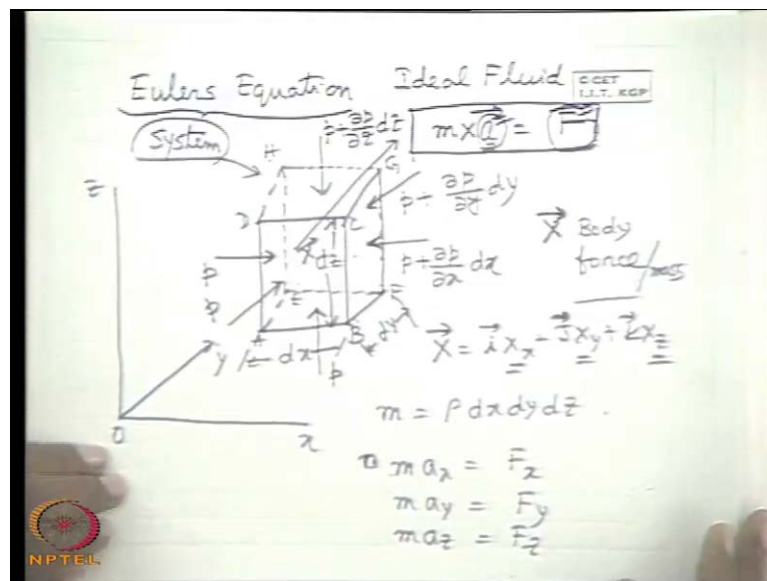 Eulers Equation Ideal Fluid
C CET
I.I.T. KGP
System
p + ∂p/∂z dz
m × a⃗ = F⃗
H
G
z
D
C
p + ∂p/∂y dy
X⃗ Body force/mass
X⃗
dz
p
p + ∂p/∂x dx
p
E
F
A
B
y
dx
dy
p
X⃗ = i⃗ X_x + j⃗ X_y + k⃗ X_z
m = ρ dx dy dz .
O
x
m a_x = F_x
m a_y = F_y
m a_z = F_z
NPTEL